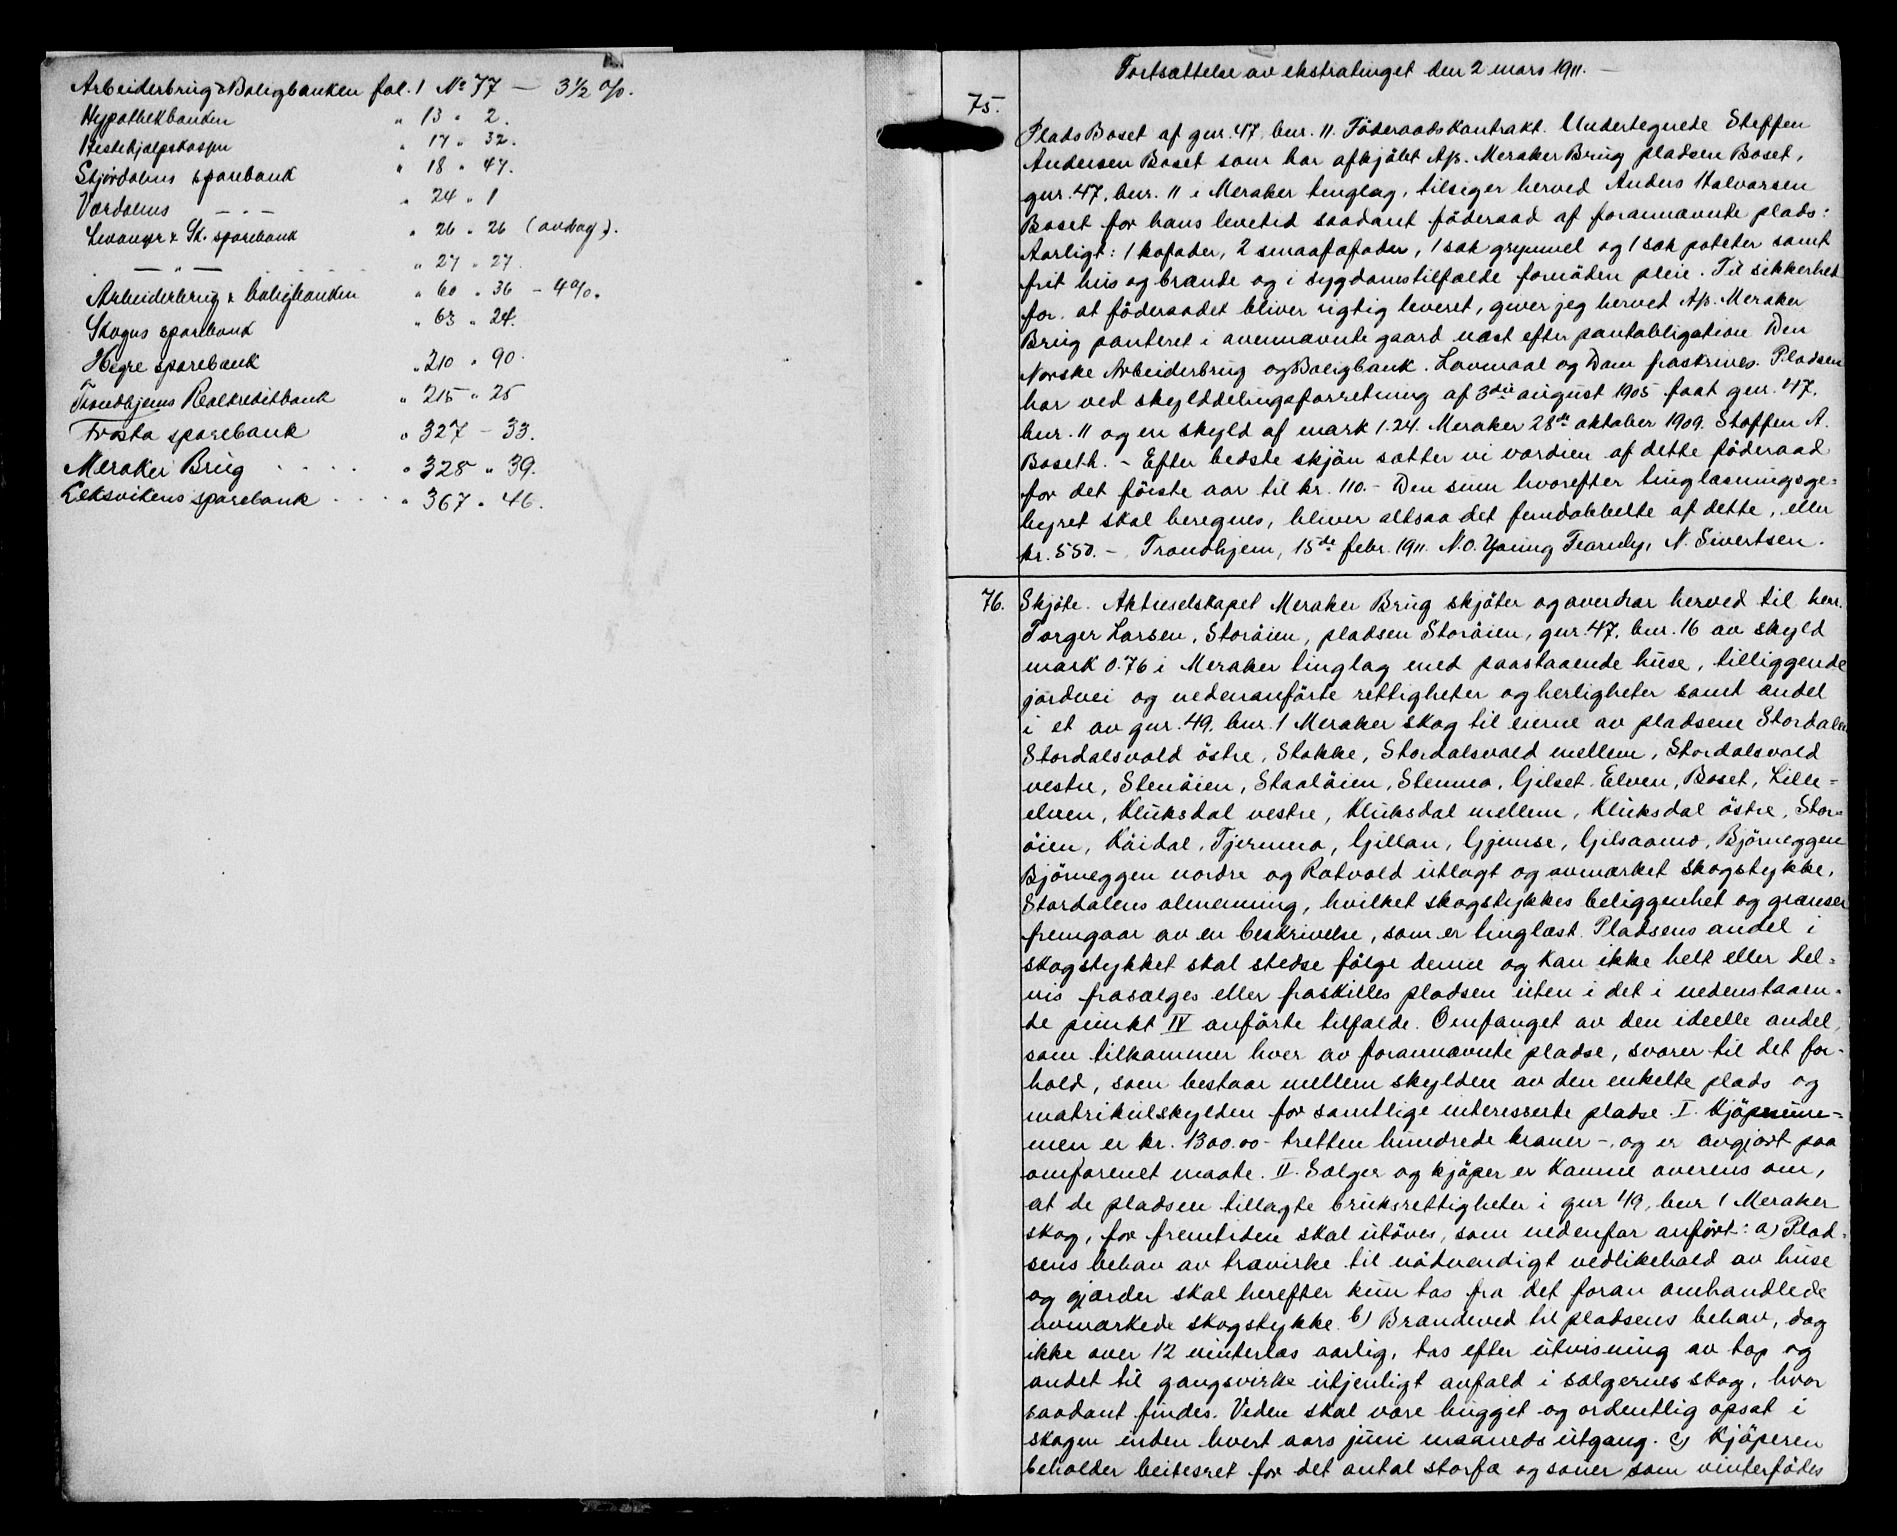 Arbeiderbrug & Boligbanken fol. 1 No 77 — 3½ %.
Hypothekbanken " 13 " 2.
Hestehjælpskassen " 17 " 32.
Stjørdalens sparebank " 18 " 47.
Værdalens — " — " 24 " 1
Levanger & Sk. sparebank " 26 " 26 (avdrag).
— " — " 27 " 27.
Arbeiderbrug & boligbanken " 60 " 36 - 4%.
Skogns sparebank " 63 " 24.
Hegre sparebank " 210 " 90.
Trondhjems Realkreditbank " 215 " 25
Frosta sparebank " 327 — 33.
Meraker Brug . . . . " 328 " 39.
Leksvikens sparebank . . . " 367 " 46.
Fortsættelse av ekstratinget den 2 mars 1911. —
75.
Plads Boset af gnr. 47, bnr. 11. Föderaadskontrakt. Undertegnede Steffen
Andersen Boset som har afkjöbt A/s. Meraker Brug pladsen Boset,
gnr. 47, bnr. 11 i Meraker tinglag, tilsiger herved Anders Halvorsen
Boset for hans levetid saadant föderaad af forannævnte plads:
Aarligt: 1 kofoder, 2 smaafæfoder, 1 sæk grynmel og 1 sæk poteter samt
frit hus og brænde og i sygdomstilfælde fornöden pleie. Til sikkerhed
for at föderaadet bliver rigtig leveret, giver jeg herved A/s. Meraker
Brug panteret i ovennævnte gaard næst efter pantobligation Den
Norske Arbeiderbrug og Boligbank. Lovmaal og Dom fraskrives. Pladsen
har ved skylddelingsforretning af 3die august 1905 faat gnr. 47.
bnr. 11 og en skyld af mark 1.24. Meraker 28de oktober 1909. Stoffen A.
Boseth. - Efter bedste skjön sætter vi værdien af dette föderaad
for det förste aar til kr. 110.- Den sum hvorefter tinglæsningsge=
byret skal beregnes, bliver altsaa det femdobbelte af dette, eller
kr. 550. - Trondhjem, 15de febr. 1911. N.O. Young Fearnly, N. Sivertsen.
76. Skjöte. Aktieselskapet Meraker Brug skjöter og overdrar herved til herr.
Torger Larsen, Storöien, pladsen Storöien, gnr. 47, bnr. 16 av skyld
mark 0.76 i Meraker tinglag med paastaaende huse, tilliggende
jordvei og nedenanförte rettigheter og herligheter samt andel
i et av gnr. 49. bnr. 1 Meraker skog til eierne av pladsene Stordalen
Stordalsvold östre, Stokke, Stordalsvold mellem, Stordalsvold
vestre, Stenöien, Staalöien, Stenmo, Gilset, Elven, Boset, Lille=
elven, Kluksdal vestre, Kluksdal mellem, Kluksdal östre, Stor=
öien, Köidal, Tjernmo, Gillan, Gjemse, Gilsaamo, Björneggen
Björneggen nordre og Rotvold utlagt og avmerket skogstykke,
Stordalens almenning, hvilket skogstykkes beliggenhet og grænser
fremgaar av en beskrivelse, som er tinglæst. Pladsens andel i
skogstykket skal stedse fölge denne og kan ikke helt eller del=
vis frasælges eller fraskilles pladsen uten i det i nedenstaaen=
de punkt IV anförte tilfælde. Omfanget av den ideelle andel,
som tilkommer hver av forannævnte pladse, svarer til det for=
hold, som bestaar mellem skylden av den enkelte plads og
matrikulskylden for samtlige interesserte pladse. I. Kjöpesum=
men er kr. 1300.00 - tretten hundrede kroner -, og er avgjort paa
omforenet maate. II. Sælger og kjöper er komne overens om,
at de pladsen tillagte bruksrettigheter i gnr 49, bnr 1 Meraker
skog, for fremtiden skal utöves, som nedenfor anfört: a) Plad=
sens behov av trævirke til nödvendigt vedlikehold av huse
og gjærder skal herefter kun tas fra det foran omhandlede
avmerkede skogstykke. b) Brændeved til pladsens behov, dog
ikke over 12 vinterlæs aarlig, tas efter utvisning av top og
andet til gangsvirke utjenligt avfald i sælgernes skog, hvor
saadant findes. Veden skal være hugget og ordentlig opsat i
skogen inden hvert aars juni maaneds utgang. c) Kjöperen
beholder beitesret for det antal storfæ og sauer som vinterfödes